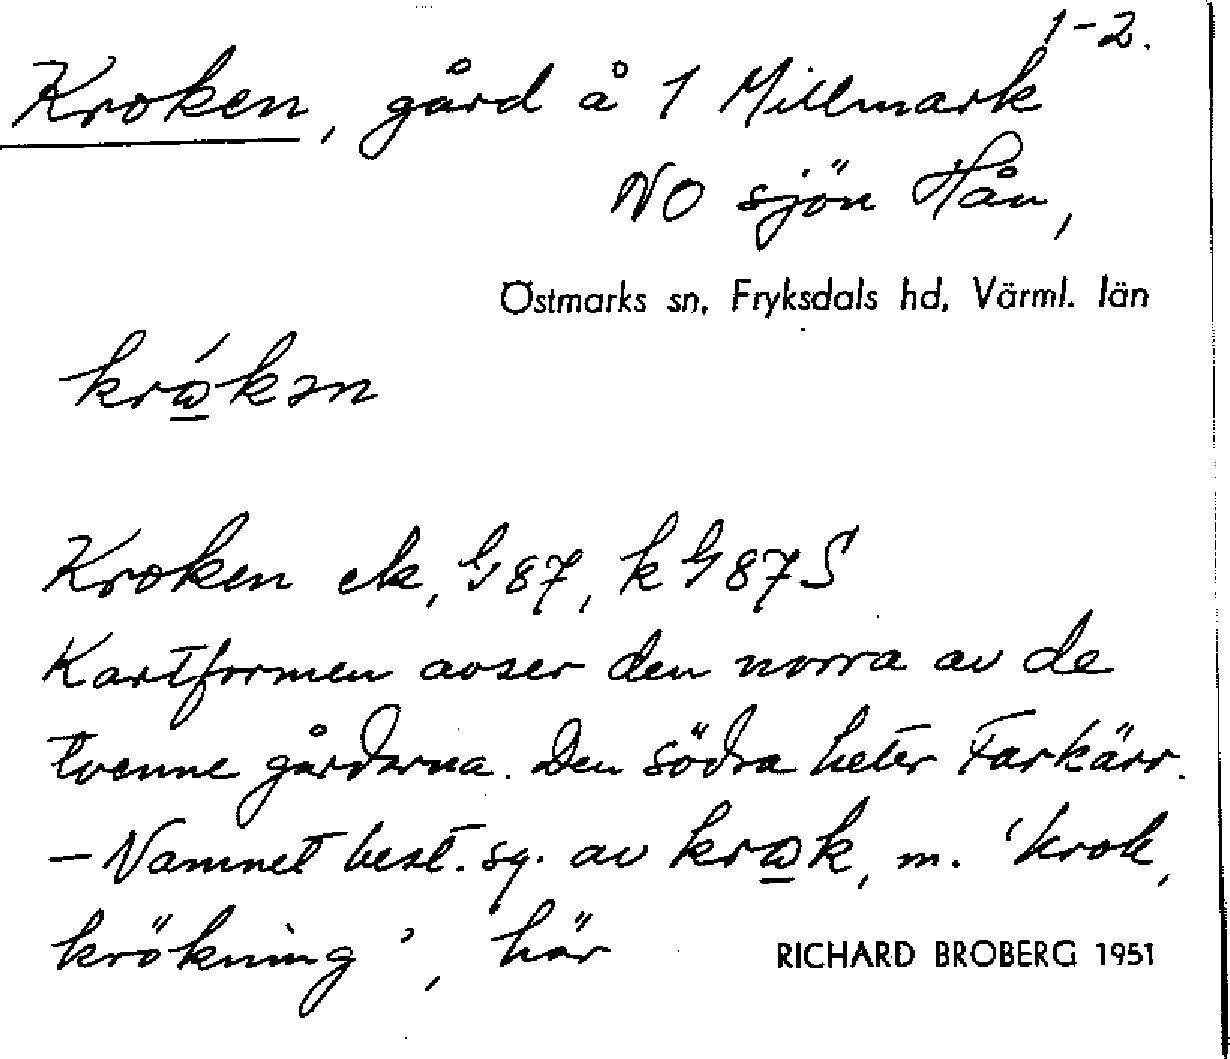 1-2.
Kroken, gård å 1 Millmark
NO sjön Hån,
Östmarks sn, Fryksdals hd, Värml. län
krώ̲kən
Kroken ek, G87, kG87S
Kartformen avser den norra av de
tvenne gårdarna. Den södra heter Tarkärr.
– Namnet best. sg. av krω̲k, m. 'krok,
krökning', här
RICHARD BROBERG 1951